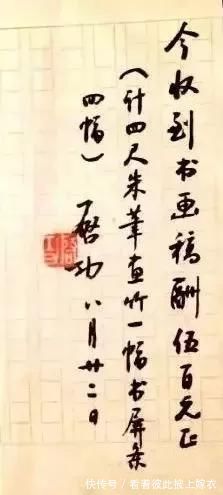 今收到书画稿酬伍百元正
（计四尺朱笔画竹一幅书屏条
四幅）启功八月廿二日
启功
快传号／看看彼此披上嫁衣